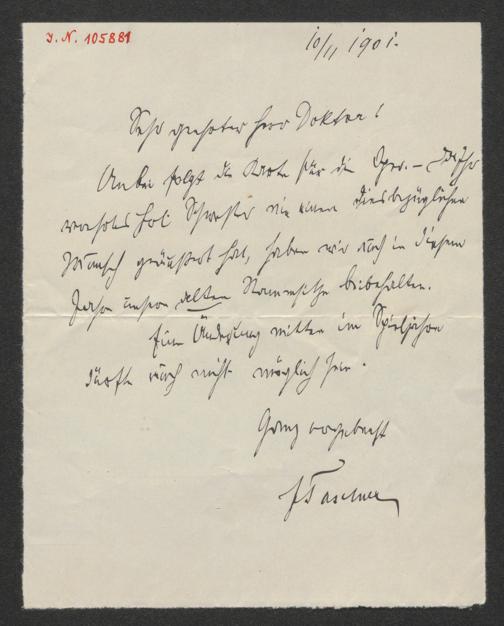 J. N. 105881
10/11 1901.
Sehr geehrter Herr Doktor!
Anbei folgt die Karte für die Oper. – Da Ihr
Schwester nie einen diesbezüglichen
Wunsch geäussert hat, haben wir auch in diesem
Jahre unsere alten Stammsitze beibehalten.
Eine Änderung mitten im Spieljahre
dürfte auch nicht möglich sein.
Ganz ergebenst